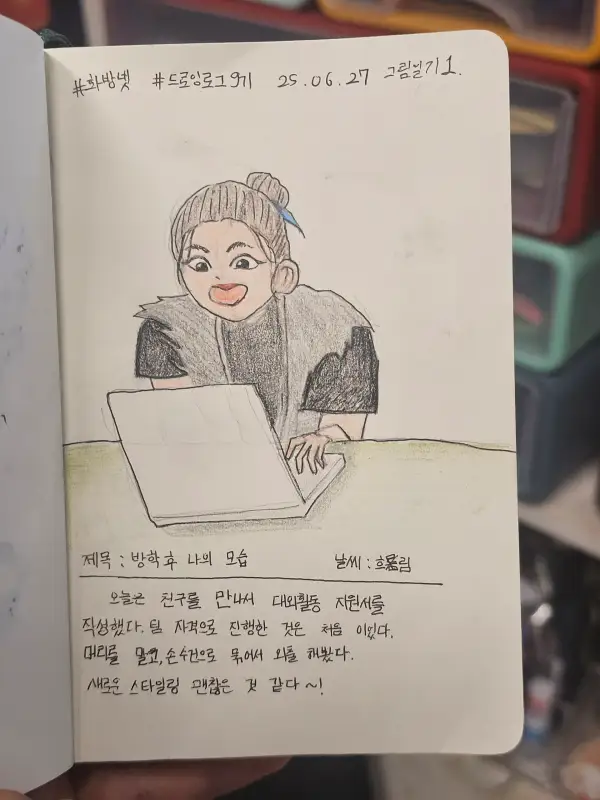 #화방넷 #드로잉로그9기 25.06.27 그림일기1.
제목 : 방학 후 나의 모습 날씨 : 흐림
오늘은 친구를 만나서 대외활동 지원서를
작성했다. 팀 자격으로 진행한 것은 처음 이었다.
머리를 말고, 손수건으로 묶어서 외출 해봤다.
새로운 스타일링 괜찮은 것 같다~!